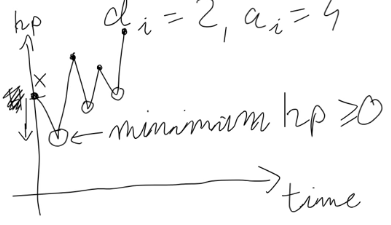 hp
d i = 2, a i = 4
x
minimum hp ≥0
time